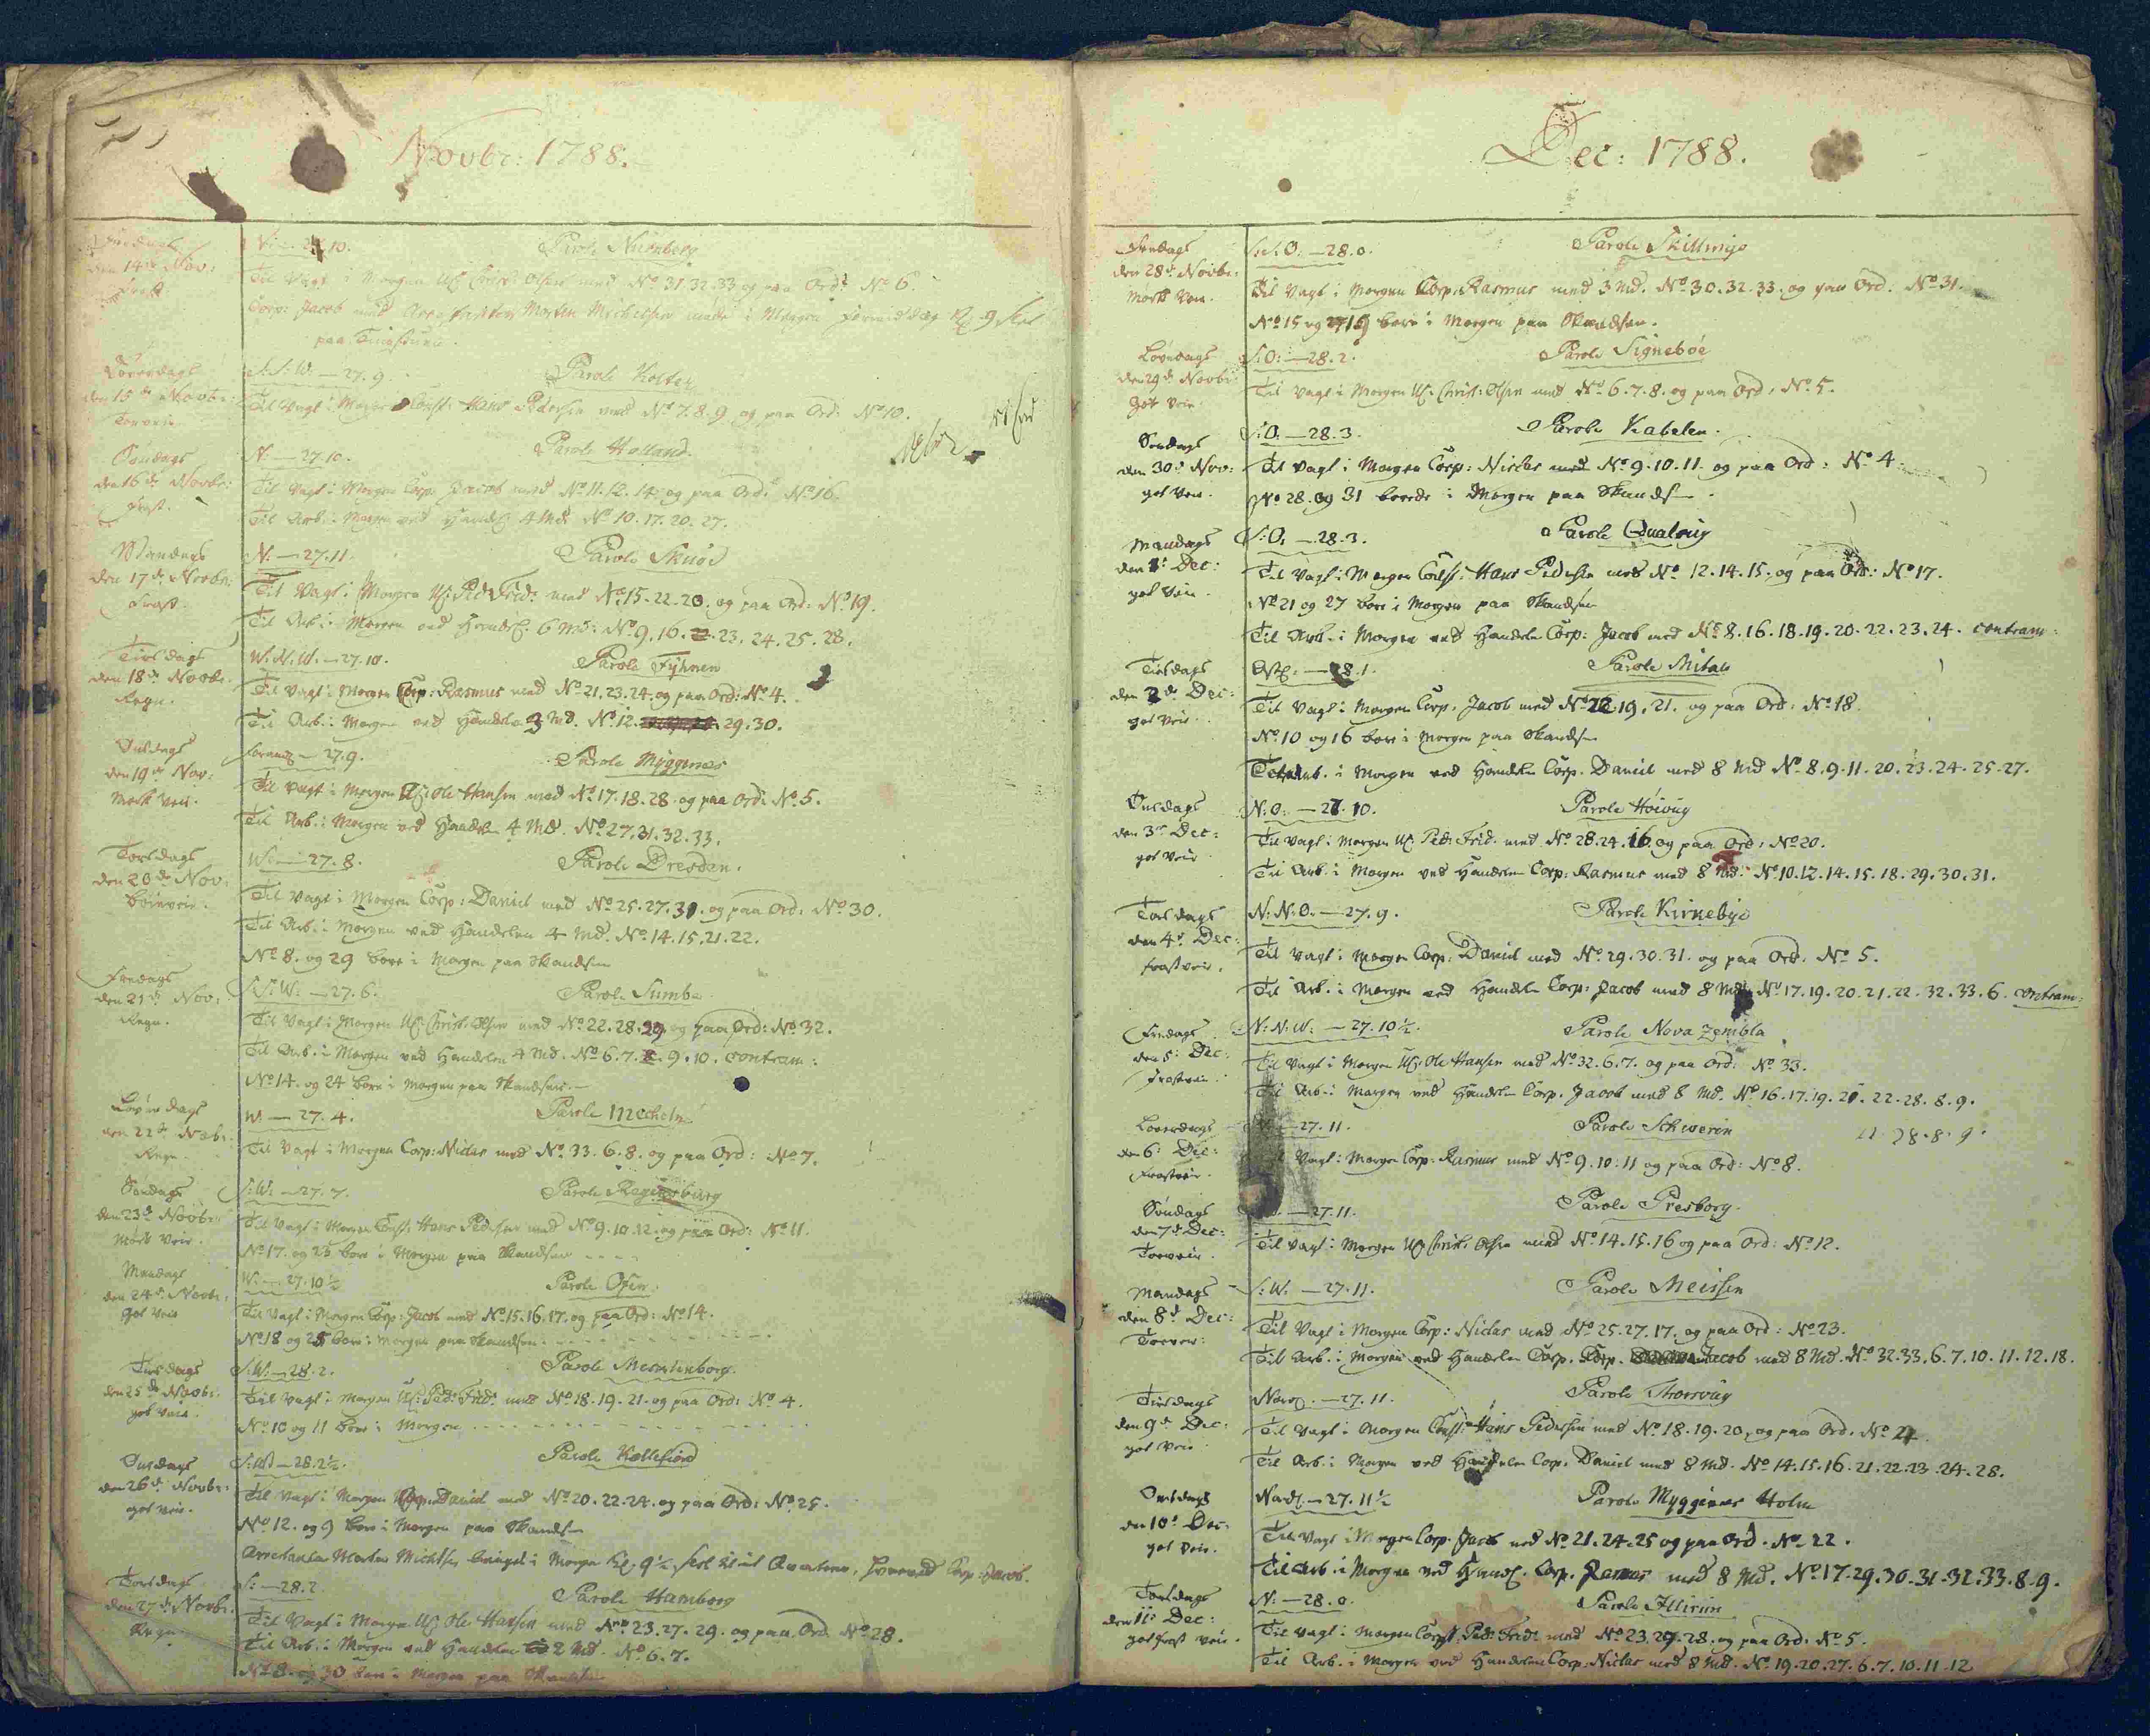 Novbr: 1788.
Fredags
den 14de Nov:
Frost
N: — 27.10.
Parole Nürnberg
Til Vagt i Morgen U: Christ: Olsen med No 31.32.33 og paa Ord: No 6.
Corp: Jacob med Arrestanten Morten Michelsen møde i Morgen Formiddag Kl. 9 Slet
paa Tinghuuset.
Løverdags
den 15de Novbr:
S.S.W. — 27.9.
Parole Kolter
Til Vagt i Morgen Const: Hans Pedersen med No 7.8.9 og paa Ord: No 10.
Søndags
den 16de Novbr:
Frost.
N. — 27.10.
Parole Holland.
Til Vagt i Morgen Corp: Jacob med No 11.12.14. og paa Ord: No 16.
Til Arb. i Morgen ved Handl: 4 Md. No 10.17.20.27.
Mandags
den 17de Novbr:
Frost.
N. — 27.11.
Parole Skuøe
Til Vagt i Morgen U: Ped: Frid: med No 15.22.20. og paa Ord: No 19.
Til Arb. i Morgen ved Handl: 6 Md: No 9.16. 23. 24. 25. 28.
Tirsdags
den 18de Novbr.
Regn.
W.N.W. — 27.10.
Parole Fyhnen
Til Vagt i Morgen Corp: Rasmus med No 21.23.24. og paa Ord: No 4.
Til Arb. i Morgen ved Handelen 3 Md. No 12. 29.30.
Onsdags
den 19de Nov:
Mørk Veir.
27.9.
Parole Myggenes
Til Vagt i Morgen U: Ole Hansen med No 17.18.28. og paa Ord: No 5.
Til Arb. i Morgen ved Handelen 4 Md. No 27.31.32.33.
Torsdags
den 20de Nov:
W: — 27.8.
Parole Dresden.
Til Vagt i Morgen Corp: Daniel med No 25.27.31. og paa Ord: No 30.
Til Arb. i Morgen ved Handelen 4 Md. No 14.15.21.22.
No 8. og 29 bore i Morgen paa Skandsen
Fredags
den 21de Nov:
Regn.
S.S.W: — 27.6.
Parole Sumbøe
Til Vagt i Morgen U: Christ: Olsen med No 22.28.29. og paa Ord: No 32.
Til Arb. i Morgen ved Handelen 4 Md. No 6.7. 9.10. contram:
No 14. og 24 bore i Morgen paa Skandsen. —
Løverdags
den 22de Nobr.
Regn.
W — 27.4.
Parole Mecheln
Til Vagt i Morgen Corp: Niclas med No 33.6.8. og paa Ord: No 7.
Søndags
den 23de Novbr:
Mørk Veir.
S:W: — 27.7.
Parole Regensburg
Til Vagt i Morgen Const: Hans Pedersen med No 9.10.12. og paa Ord: No 11.
No 17. og 25 bore i Morgen paa Skandsen
Mandags
den 24de Novbr.
got Veir
W: — 27.10½
Parole Ofen.
Til Vagt i Morgen Corp: Jacob med No 15.16.17. og paa Ord: No 14.
No 18 og 25 bore i Morgen paa Skandsen.
Tirsdags
den 25de Novbr.
got Veir.
S.W: — 28.2.
Parole Mecklenborg.
Til Vagt i Morgen U: Ped: Frid: med No 18.19.21. og paa Ord: No 4.
No 10 og 11 bore i Morgen
Onsdags
den 26de Novbr:
got Veir.
S:W: — 28.2½.
Parole Kollefiord
Til Vagt i Morgen Corp: Daniel med No 20.22.24. og paa Ord: No 25.
No 12. og 9 bore i Morgen paa Skandsen
Arrestanten Morten Michelsen bringes i Morgen Kl. 9½ Slet til Corp: Jacob.
Torsdags
den 27de Novbr.
Regn.
S: — 28.2.
Parole Hamborg
Til Vagt i Morgen U: Ole Hansen med No 23.27.29. og paa Ord: No 28.
Til Arb. i Morgen ved Handelen 2 Md. No 6.7.
No 8. og 30 bore i Morgen paa Skandsen
Dec: 1788.
Fredags
den 28de Novbr:
Mørk Veir.
S.S.O. — 28.0.
Parole Skillinge
Til Vagt i Morgen Corp: Rasmus med 3 Md. No 30.32.33. og paa Ord. No 31.
No 15 og 19 bore i Morgen paa Skandsen.
Løverdags
den 29de Novbr:
Got Veir.
S:O: — 28.2.
Parole Signebøe
Til Vagt i Morgen U: Christ: Olsen med No 6.7.8. og paa Ord: No 5.
Søndags
den 30de Nov:
got Veir.
S:O. — 28.3.
Parole Kabelen.
Til Vagt i Morgen Corp: Niclas med No 9.10.11. og paa Ord: No 4.
No 28. og 31 borede i Morgen paa Skandsen.
Mandags
den 1: Dec:
got Veir.
S:O. — 28.3.
Parole Qualvig
Til Vagt i Morgen Const: Hans Pedersen med No 12.14.15. og paa Ord: No 17.
No 21 og 27 bore i Morgen paa Skandsen
Til Arb. i Morgen ved Handelen Corp: Jacob med No 8.16.18.19.20.22.23.24. contram:
Tirsdags
den 2de Dec:
got Veir.
Ost: — 28.1.
Parole Mitau
Til Vagt i Morgen Corp. Jacob med No 12.19.21. og paa Ord: No 18.
No 10 og 16 bore i Morgen paa Skandsen
Til Arb. i Morgen ved Handelen Corp. Daniel med 8 Md No 8.9.11.20.23.24.25.27.
Onsdags
den 3de Dec:
got Veir
N.O: — 27.10.
Parole Høivig
Til Vagt i Morgen U: Ped: Frid. med No 28.24.16. og paa Ord: No 20.
Til Arb. i Morgen ved Handelen Corp: Rasmus med 8 Md: No 10.12.14.15.18.29.30.31.
Torsdags
den 4de Dec:
frostveir.
N:N.O. — 27.9.
Parole Kirnebye
Til Vagt i Morgen Corp: Daniel med No 29.30.31. og paa Ord. No 5.
Til Arb. i Morgen ved Handelen Corp: Jacob med 8 Md. No 17.19.20.21.22.32.33.6. contram:
Fredags
den 5: Dec:
Frostveir.
N:N:W: — 27.10½.
Parole Nova Zembla
Til Vagt i Morgen U: Ole Hansen med No 32.6.7. og paa Ord: No 33.
Til Arb. i Morgen ved Handelen Corp. Jacob med 8 Md. No 16.17.19.21.22.28.8.9.
Løverdags
den 6: Dec:
Frostveir.
— 27.11.
Parole Schwerin
22.28.8.9.
Vagt i Morgen Corp: Rasmus med No 9.10.11 og paa Ord: No 8.
Søndags
den 7de Dec:
Toeveir.
— 27.11.
Parole Presborg.
Til Vagt i Morgen U: Christ: Olsen med No 14.15.16 og paa Ord: No 12.
Mandags
den 8de Dec:
Toeveir:
S:W. — 27.11.
Parole Meissen
Til Vagt i Morgen Corp: Niclas med No 25.27.17. og paa Ord: No 23.
Til Arb. i Morgen ved Handelen Corp. Corp. Jacob med 8 Md. No 32.33.6.7.10.11.12.18.
Tirsdags
den 9de Dec:
got Veir
Nord. — 27.11.
Parole Thorsvig
Til Vagt i Morgen Const: Hans Pedersen med No 18.19.20, og paa Ord. No 4.
Til Arb. i Morgen ved Handelen Corp. Daniel med 8 Md. No 14.15.16.21.22.23.24.28.
Onsdags
den 10de Dec:
got Veir.
Nord. — 27.11½
Parole Myggenes Holm
Til Vagt i Morgen Corp. Jacob med No 21.24.25 og paa Ord. No 22.
Til Arb. i Morgen ved Handl. Corp. Rasmus med 8 Md. No 17.29.30.31.32.33.8.9.
Torsdags
den 11: Dec:
got frost Veir.
N: — 28.0.
Parole Illirien
Til Vagt i Morgen Const. Ped: Frid: med No 23.27.28. og paa Ord: No 5.
Til Arb. i Morgen ved Handelen Corp: Niclas med 8 Md. No 19.20.27.6.7.10.11.12